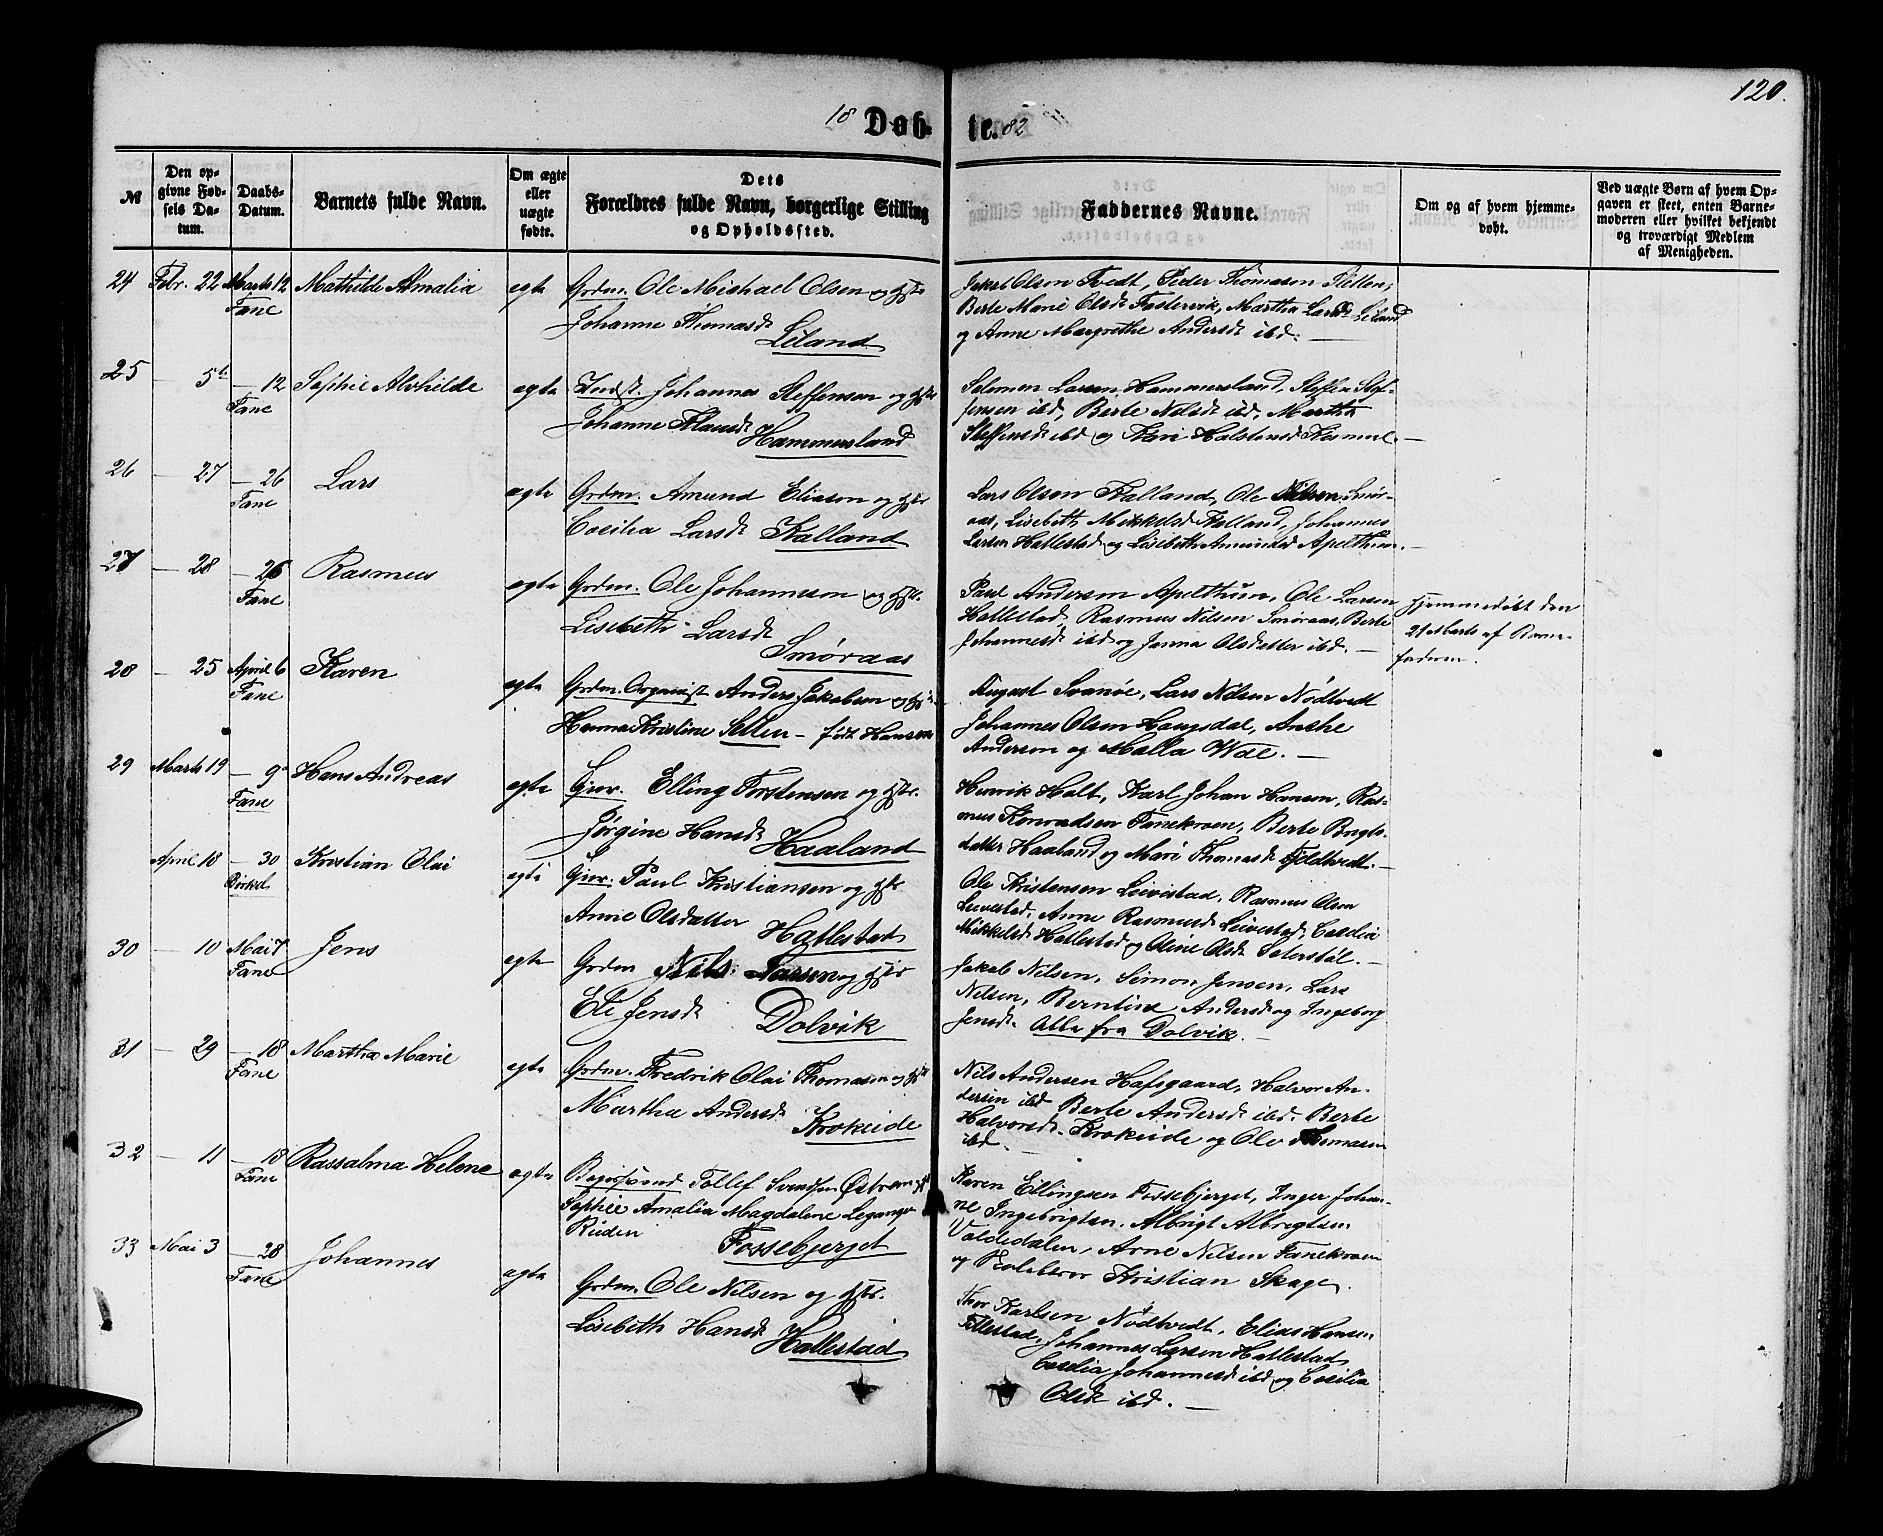 120.
18 Døb- te. 82
№
Den op-
givne Fød-
sels Da-
tum.
Daabs-
Datum.
Barnets fulde Navn.
Om ægte
eller
uægte
fødte.
Dets
Forældres fulde Navn, borgerlige Stilling
og Opholdssted.
Faddernes Navne.
Om og af hvem hjemme-
døbt.
Ved uægte Børn af hvem Op-
gaven er skeet, enten Barne-
moderen eller hvilket bekjendt
og troværdigt Medlem
af Menigheden.
24 Febr. 22 Marts 12 Mathilde Amalia egte Grdm. Ole Michael Olsen og Hstr
Fane
Johanne Thomasdt
Liland
Jakob Olsen Tvedt, Peder Thomasen Stetten,
Berte Marie Olsdt Fastervik, Martha Larsdt Liland
og Anne Margrethe Andersdt ibd. —
25 — 5te — 12 Sophie Alvhilde egte Indst. Johannes Steffensen og Hstr
Fane
Johanne Klausdt
Hammersland
Salomon Larsen Hammersland, Steffen Stef-
fensen ibd, Berte Nilsdt ibd, Martha
Steffensdt ibd og Kari Halstensdt —
26 — 27 — 26 Lars egte Grdm. Amund Eliasen og Hstr
Fane
Cecilia Larsdt Kalland
Lars Olsen Kalland, Ole Nilsen Smør-
aas, Lisebeth Mikkelsdt Kalland, Johannes
Larsen Hatlestad og Lisebeth Amundsdt Apelthun. —
27 — 28 — 26 Rasmus egte Grdm. Ole Johannesen og Hstr.
Fane
Lisebeth Larsdt
Smøraas
Paul Andersen Apelthun, Ole Larsen
Hatlestad, Rasmus Nilsen Smøraas, Berte
Johannesdt ibd og Janna Olsdatter ibd. —
Hjemmedøbt den
21 Marts af Barne-
faderen.
28 — 25 April 6 Karen egte Grdm. Organist Anders Jakobsen og Hstr
Fane
Hanna Kristine Sellen — født Hansen
August Svanøe, Lars Nilsen Nødtvedt
Johannes Olsen Haugsdal, Anthe
Andersen og Malla Woe. —
29 Marts 19 — 9de Hans Andreas egte Gjør. Elling Torstensen og Hstr.
Fane
Jørgine Hansdt
Haaland
Henrik Holt, Karl Johan Hansen, Ras-
mus Konradsen Fanekroen, Berte Brynts-
datter Haaland og Mari Thomasdt Fjeldtvedt. —
April 18 — 30 Kristian Olai egte Gjør. Paul Kristiansen og Hstr
Birkel.
Anne Olsdatter Hatlestad
Ole Kristensen Leivestad, Rasmus Olsen
Leivestad, Anne Rasmusdt Leivestad, Cecelia
Mikkelsdt Hatlestad og Oline Olsdt Seterstøl. —
30 — 10 Mai 7 Jens egte Grdm Nils Larsen og Hstr
Fane
Eli Jensdt Dolvik
Jakob Nilsen, Simon Jensen, Lars
Nilsen, Berntine Andersdt og Ingeborg
Jensdt. Alle fra Dolvik. —
31 — 29 — 18 Martha Marie egte Grdm. Fredrik Olai Thomasen og Hstr
Fane
Martha Andersdt
Krokeide
Nils Andersen Hafsgaard, Halvor An-
dersen ibd Berte Andersdt ibd. Berte
Halvorsdt. Krokeide og Ole Thomasen
ibd. —
32 — 11 — 18 Rassalma Helene egte Tollef Svendsen
Fane
Sophie Amalia Magdalene
Fossebjerget
Karen Ellingsen Fossebjerget, Inger Johan-
ne Ingebrigtsen. Albrigt Albregtsen
Valdedalen, Arne Nilsen Fanekroen
og Kristian Skage.
33 Mai 3 — 28 Johannes egte Grdm. Ole Nilsen og Hstr.
Fane
Lisebeth Hansdt
Hatlestad
Thor Karlsen Nødtvedt, Elias Hansen
Titlestad, Johannes Larsen Hatlestad,
Cecelia Johannesdt ibd og Cecilia
Olsdt ibd. —